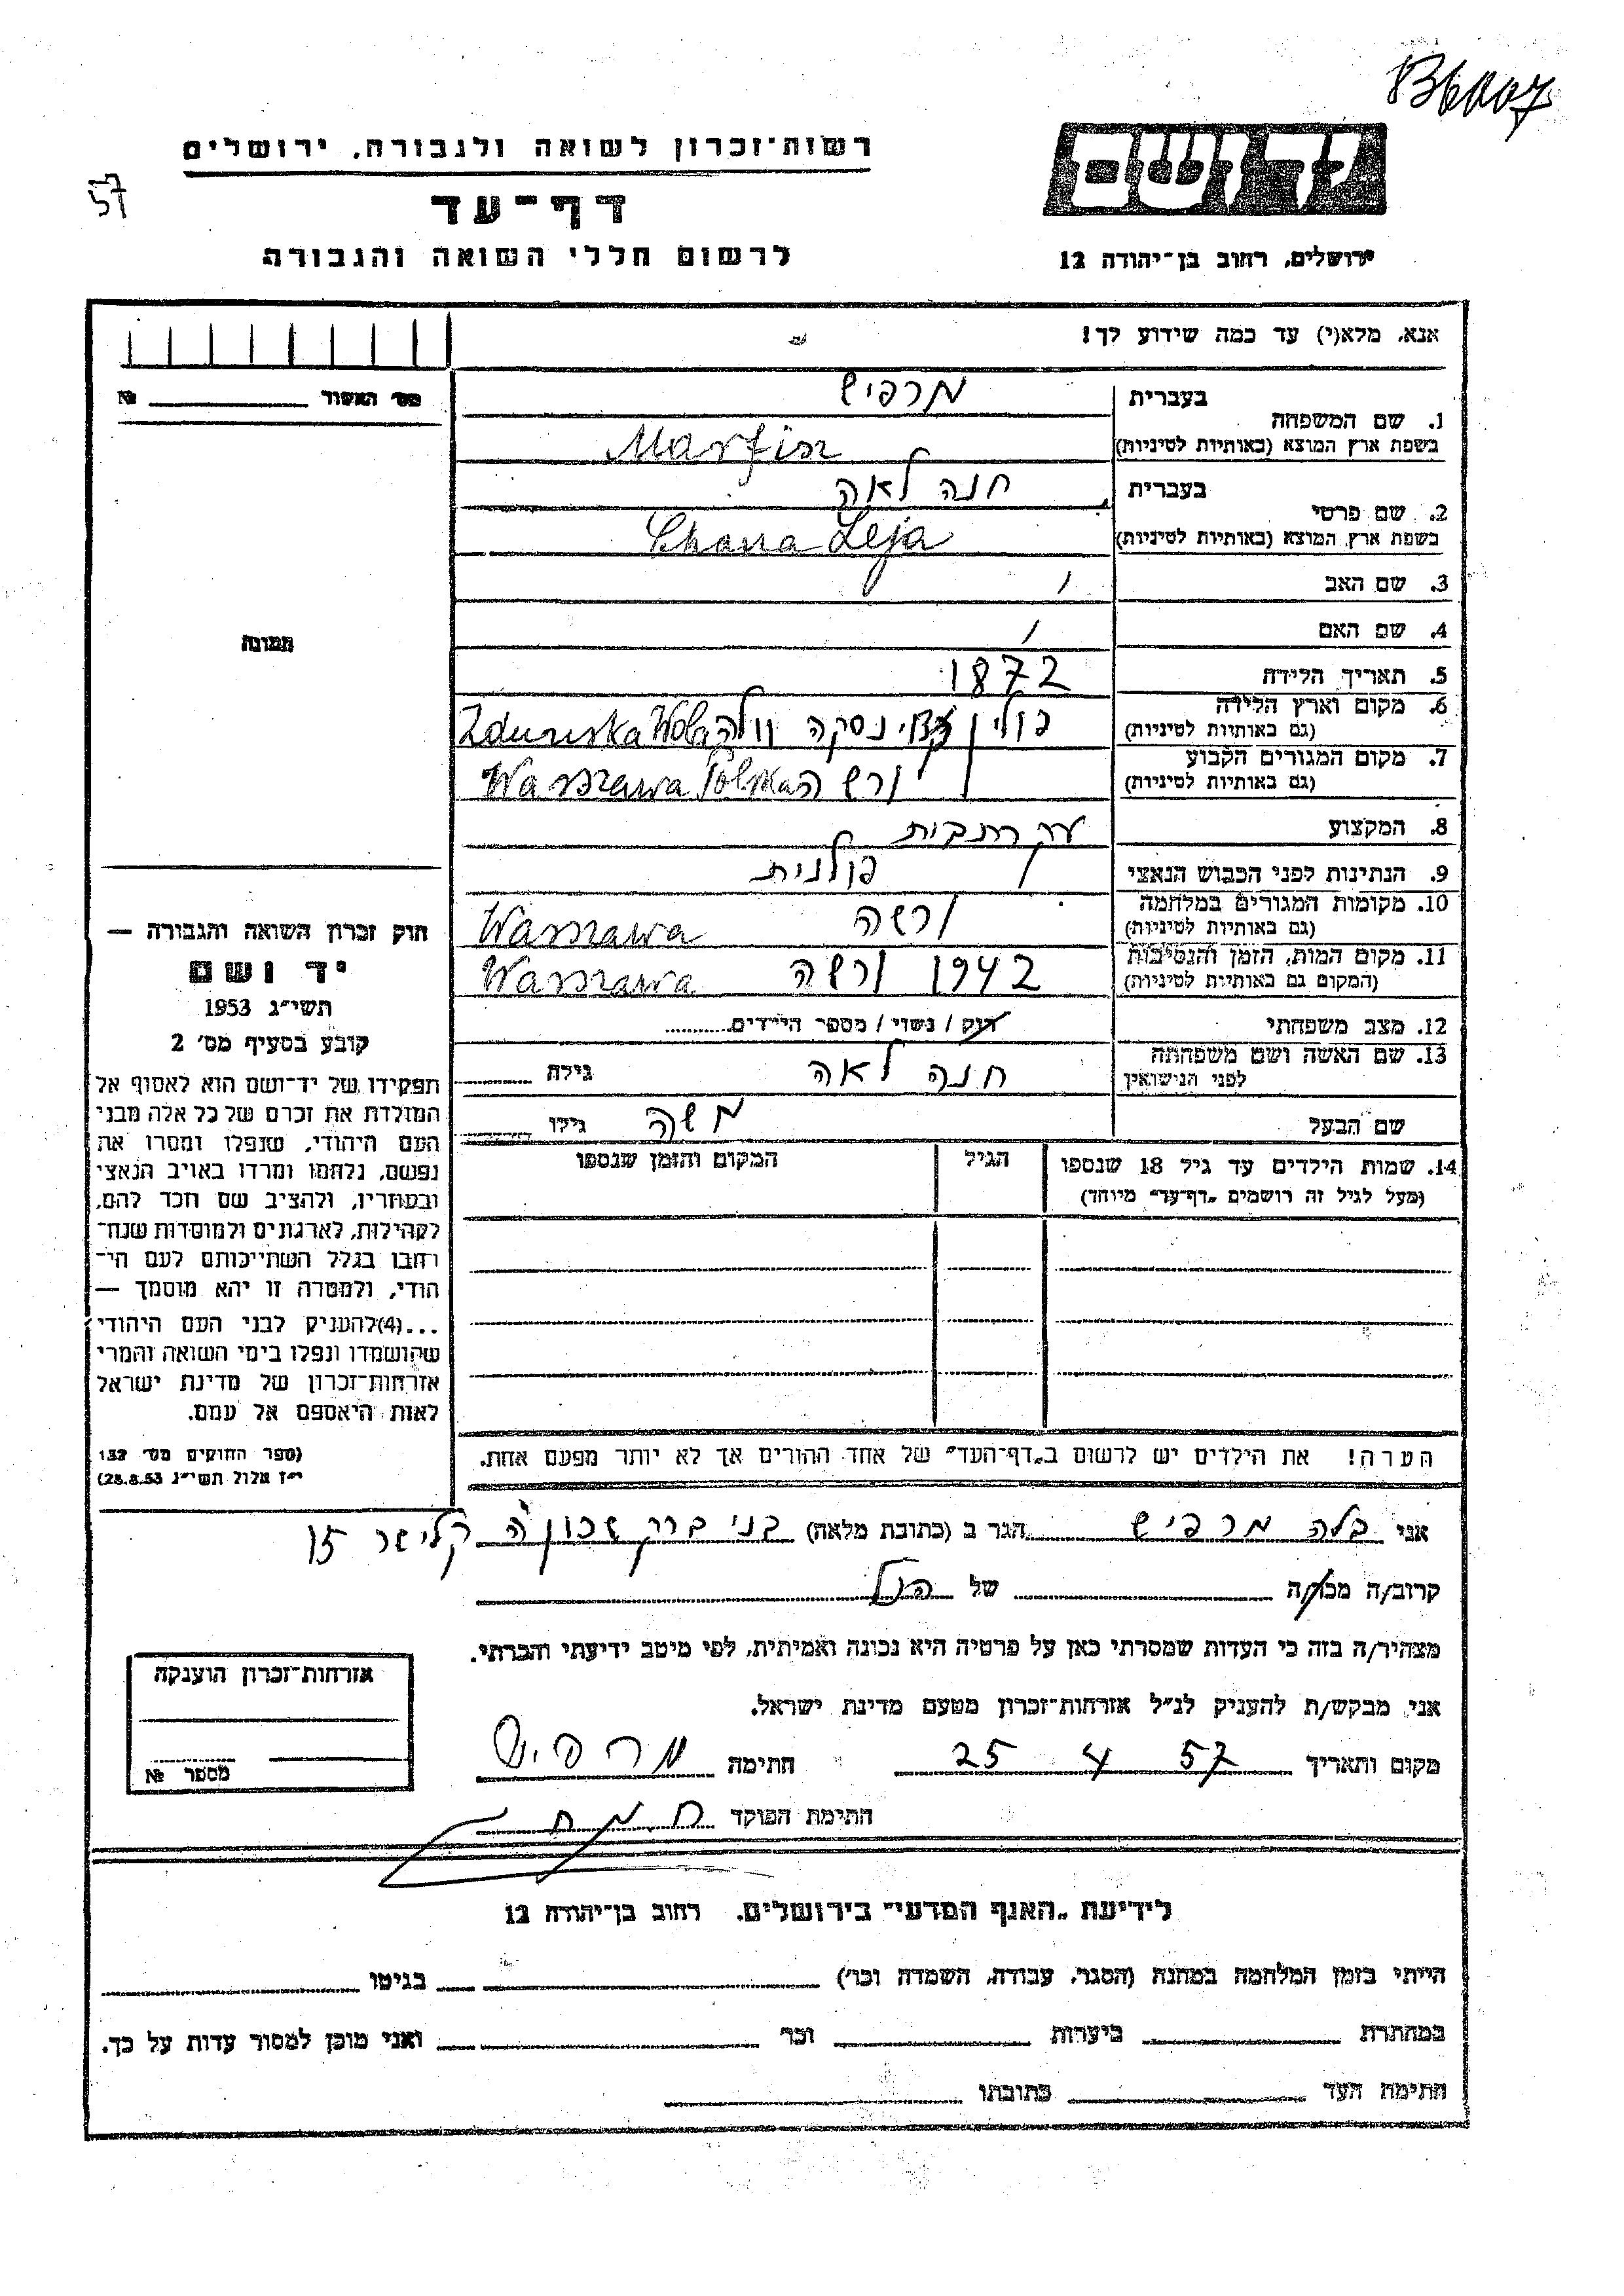 B6007
רשות־זכרון לשואה ולגבורה, ירושלים
57
דף־עד
לרשום חללי השואה והגבורה
ידושם
ירושלים, רחוב בן־יהודה 12
אנא, מלא(י) עד כמה שידוע לך!
מס' האשור № 
1. שם המשפחה
בעברית מרפיש
בשפת ארץ המוצא (באותיות לטיניות) Marfisz
2. שם פרטי
בעברית חנה לאה
בשפת ארץ המוצא (באותיות לטיניות) Chana Leja
3. שם האב
4. שם האם
תמונה
5. תאריך הלידה 1872
6. מקום וארץ הלידה פולין נסקה וולה Zdunska Wola
(גם באותיות לטיניות)
7. מקום המגורים הקבוע ורשה Warszawa Polska
(גם באותיות לטיניות)
8. המקצוע עקרת בית
9. הנתינות לפני הכבוש הנאצי פולנית
10. מקומות המגורים במלחמה ורשה Warszawa
(גם באותיות לטיניות)
11. מקום המות, הזמן והנסיבות 1942 ורשה Warszawa
(המקום גם באותיות לטיניות)
12. מצב משפחתי רווק / נשוי / מספר הילדים
13. שם האשה ושם משפחתה חנה לאה גילה
לפני הנישואין
שם הבעל משה גילו
14. שמות הילדים עד גיל 18 שנספו הגיל המקום והזמן שנספו
(מעל לגיל זה רושמים „דף־עד" מיוחד)
הערה! את הילדים יש לרשום ב„דף־העד" של אחד ההורים אך לא יותר מפעם אחת.
חוק זכרון השואה והגבורה —
יד ושם
תשי"ג 1953
קובע בסעיף מס' 2
תפקידו של יד־ושם הוא לאסוף אל
המולדת את זכרם של כל אלה מבני
העם היהודי, שנפלו ומסרו את
נפשם, נלחמו ומרדו באויב הנאצי
ובעוזריו, ולהציב שם וזכר להם,
לקהילות, לארגונים ולמוסדות שנח־
רבו בגלל השתייכותם לעם הי־
הודי, ולמטרה זו יהא מוסמך —
...(4)להעניק לבני העם היהודי
שהושמדו ונפלו בימי השואה והמרי
אזרחות־זכרון של מדינת ישראל
לאות היאספם אל עמם.
(ספר החוקים מס' 132
י"ז אלול תשי"ג 28.8.53)
אני בלה מרפיש הגר ב (כתובת מלאה) בני ברק שכון ה קלישר 15
קרוב/ה מכר/ה של הנ"ל
מצהיר/ה בזה כי העדות שמסרתי כאן על פרטיה היא נכונה ואמיתית, לפי מיטב ידיעתי והכרתי.
אני מבקש/ת להעניק לנ"ל אזרחות־זכרון מטעם מדינת ישראל.
מקום ותאריך 25 4 57 חתימה מרפיש
חתימת הפוקד
אזרחות־זכרון הוענקה
מספר №
לידיעת „האגף המדעי" בירושלים, רחוב בן־יהודה 12
הייתי בזמן המלחמה במחנה (הסגר, עבודה, השמדה וכו') בגיטו
במחתרת ביערות וכו' ואני מוכן למסור עדות על כך.
חתימת העד כתובתו